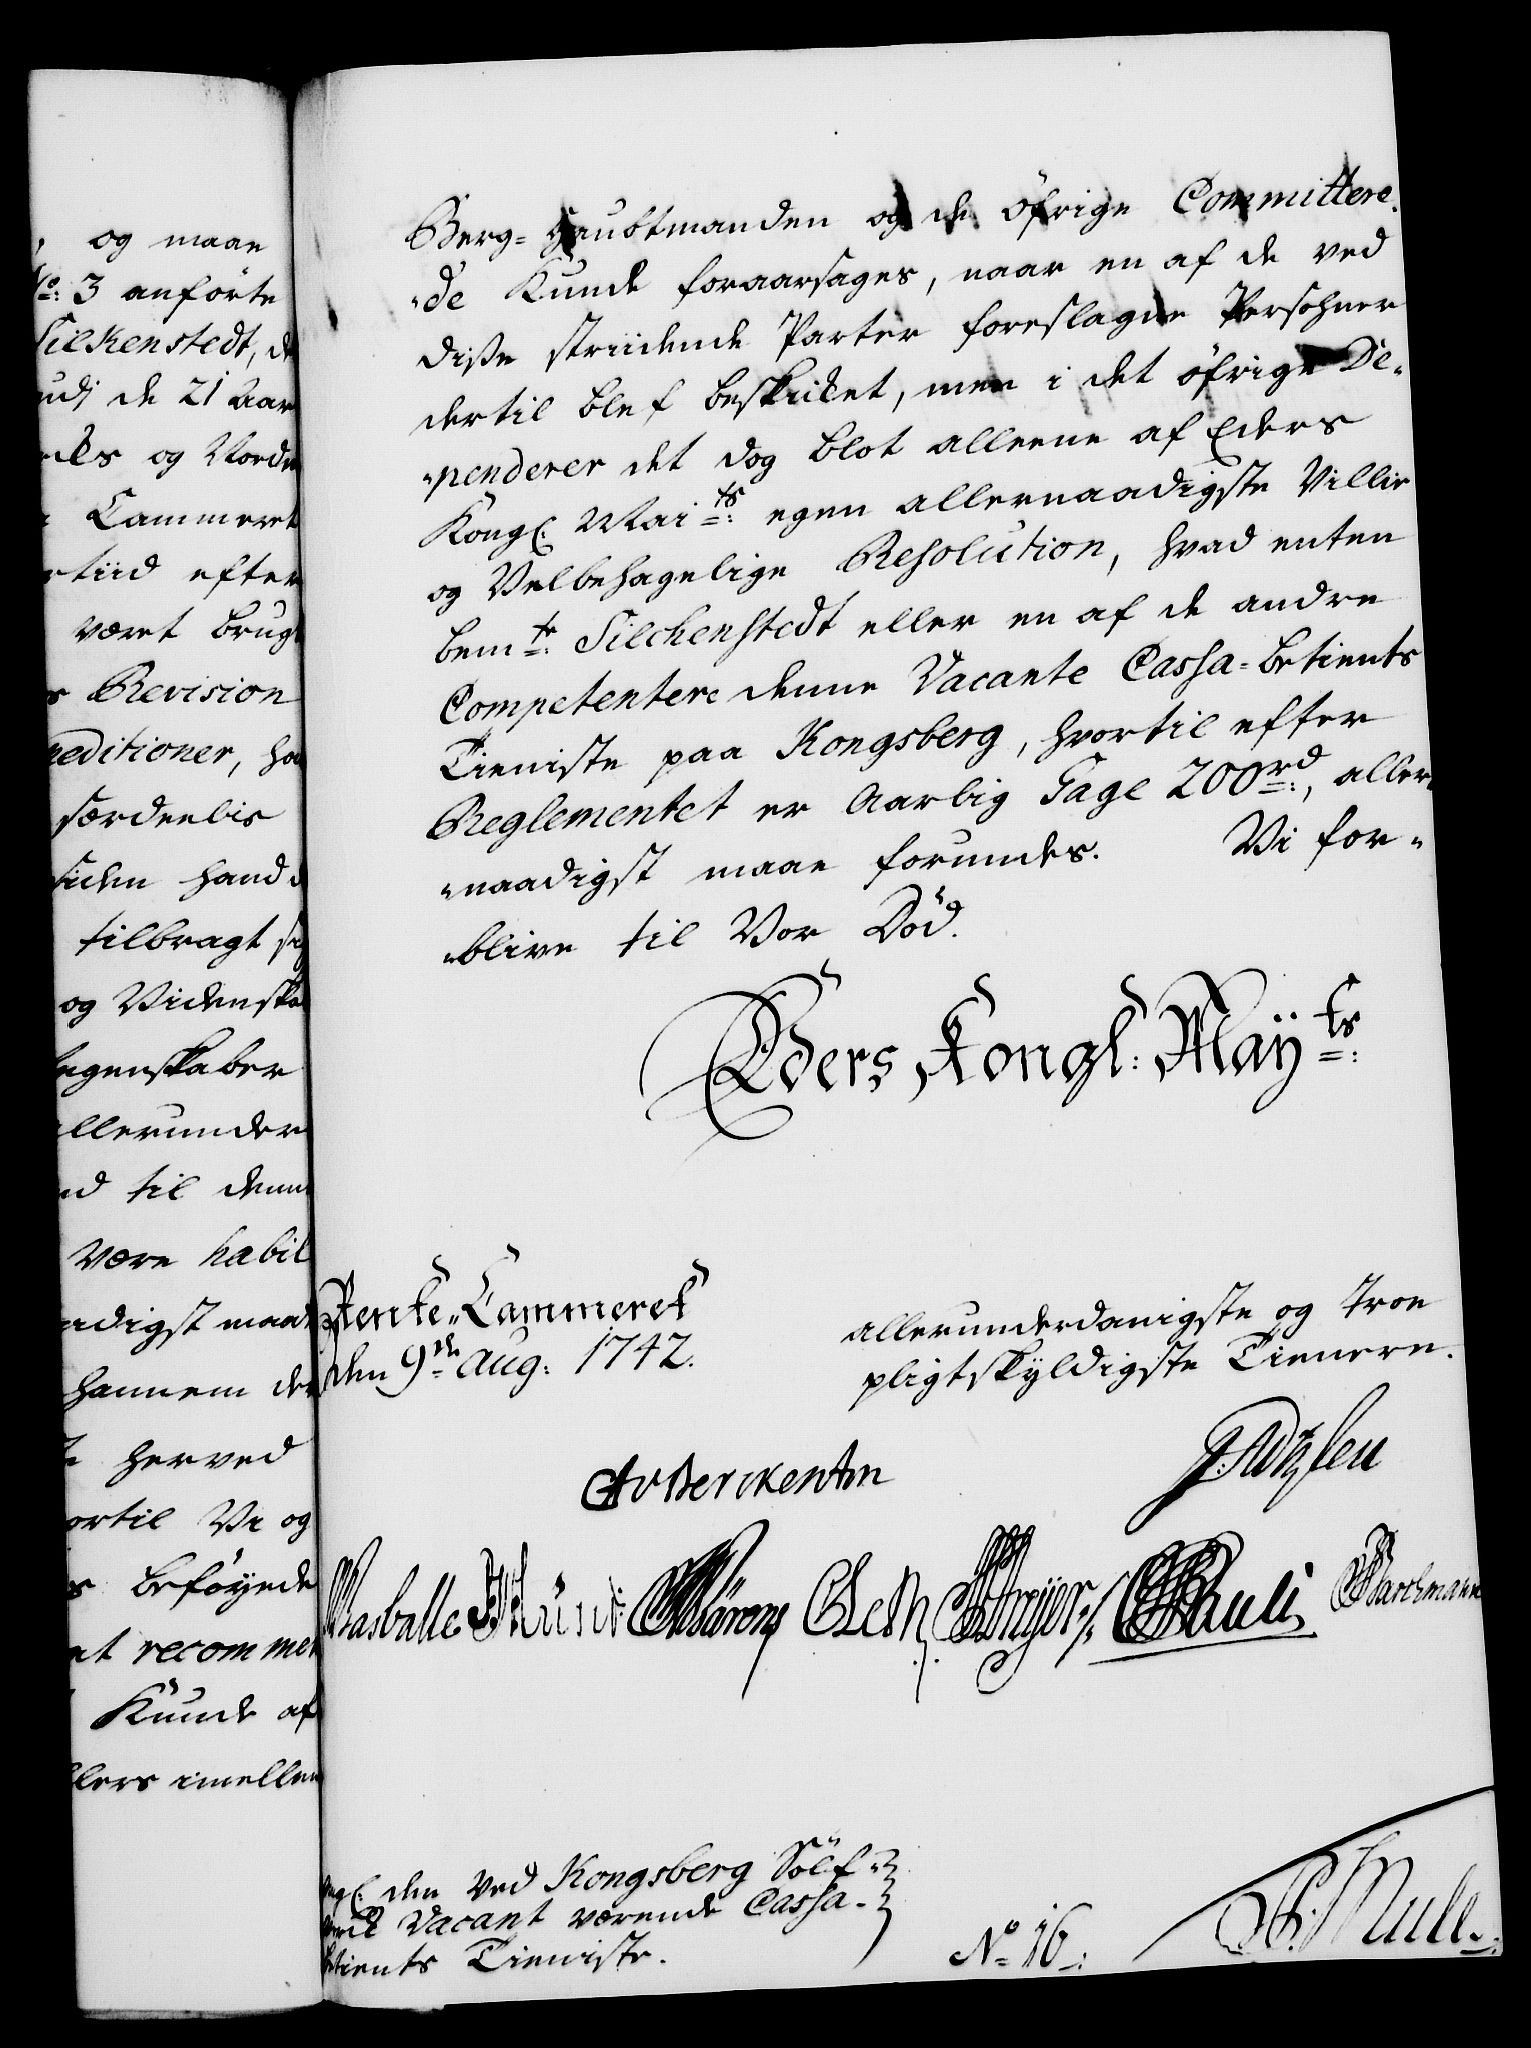 og maae
No: 3 anförte
Silkenstedt, de
udj de 21 Aar
og Norden
Cammeret
tiid efter
været brug
Revision
peditioner, ha
særdeelis
siden hand
tilbragt
og Videnska
egenskaber
allerunder
til denne
være habil
adigst maat
hannem det
herved
ortil Vi og
beföyede
recommen
Kunde af
ellers imellem
Berg-Haubtmanden og de öfrige Committere-
"de Kunde foraarsages, naar en af de ved
disse striidende Parter foreslagne Persohner
dertil blef beskicket, men i det öfrige De-
"penderer det dog blot alleene af Eders
Kongl: Maits: egen allernaadigste Villie
og Velbehagelige Resolution, hvad enten
bemte: Silckenstedt eller en af de andre
Competentere denne Vacante Cassa-betients
Tieniste paa Kongsberg, hvortil efter
Reglementet er Aarlig Gage 200rd:, aller-
"naadigst maae forundes. Vi for-
"blive til Vor Död.
Eders Kongl: Mayts:
Rente-Cammeret
den 9de Aug: 1742.
allerunderdanigste og troe
pligtskyldigste Tienere.
CAvBerckentin
Basballe
den ved Kongsberg Sölf-
Vacant værende Cassa-
betients Tieniste.
No 16: